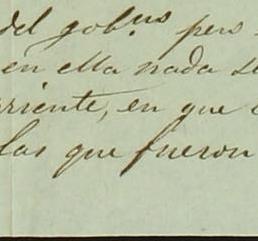 del gob.no pero
en ella nada se
rriente, en que
las que fueron